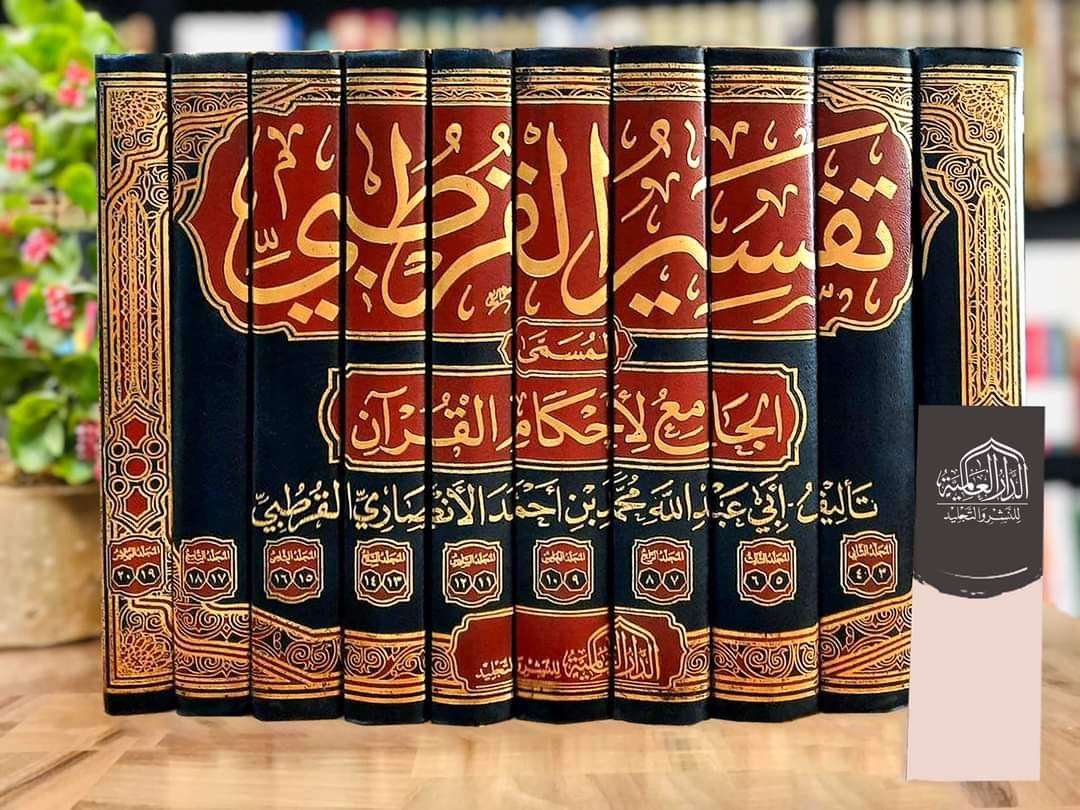 تفسير القرطبي
المسمى
الجامع لأحكام القرآن
تأليف - أبي عبد الله محمد بن أحمد الأنصاري القرطبي
المجلد الثاني
٣ ٤
المجلد الثالث
٥ ٦
المجلد الرابع
٧ ٨
المجلد الخامس
٩ ١٠
المجلد السادس
١١ ١٢
المجلد السابع
١٣ ١٤
المجلد الثامن
١٥ ١٦
المجلد التاسع
١٧ ١٨
المجلد العاشر
١٩ ٢٠
الدار العالمية للنشر والتجليد
الدار العالمية
للنشر والتجليد